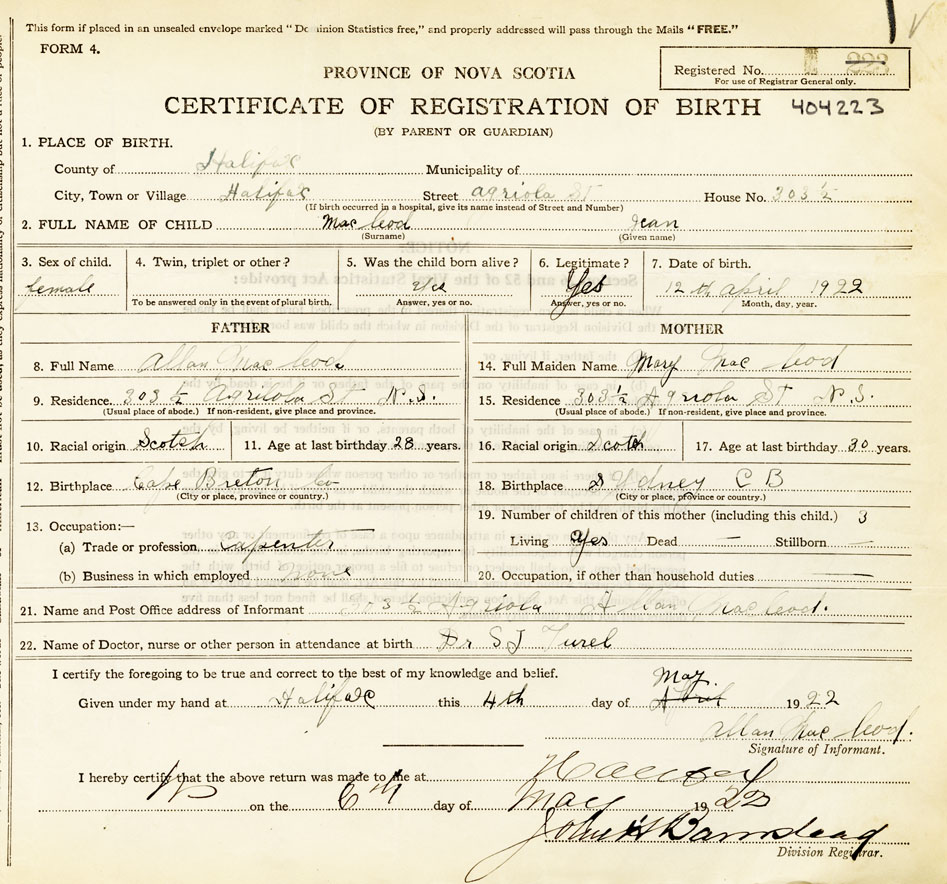 This form if placed in an unsealed envelope marked "Dominion Statistics free," and properly addressed will pass through the Mails "FREE."
FORM 4.
Registered No. 223
For use of Registrar General only.
PROVINCE OF NOVA SCOTIA
CERTIFICATE OF REGISTRATION OF BIRTH 404223
(BY PARENT OR GUARDIAN)
1. PLACE OF BIRTH.
County of Halifax Municipality of
City, Town or Village Halifax Street agriola St House No. 303 ½
(If birth occurred in a hospital, give its name instead of Street and Number)
2. FULL NAME OF CHILD Mac leod Jean
(Surname) (Given name)
3. Sex of child. 4. Twin, triplet or other? 5. Was the child born alive? 6. Legitimate? 7. Date of birth.
female yes Yes 12 th April 1922
To be answered only in the event of plural birth. Answer, yes or no. Answer, yes or no. Month, day, year.
FATHER MOTHER
8. Full Name Allan Mac leod. 14. Full Maiden Name Mary Mac leod
9. Residence. 303 ½ Agriola St N.S. 15. Residence 303½ Agriola St N.S.
(Usual place of abode.) If non-resident, give place and province. (Usual place of abode.) If non-resident, give place and province.
10. Racial origin Scotch 11. Age at last birthday 28 years. 16. Racial origin Scotch 17. Age at last birthday 30 years.
12. Birthplace Cape Breton Co 18. Birthplace Sydney C B
(City or place, province or country.) (City or place, province or country.)
13. Occupation:— 19. Number of children of this mother (including this child.) 3
(a) Trade or profession Carpenter Living Yes Dead — Stillborn —
(b) Business in which employed none 20. Occupation, if other than household duties —
21. Name and Post Office address of Informant 303 ½ Agriola Allan Mac leod.
22. Name of Doctor, nurse or other person in attendance at birth Dr S J Turel
I certify the foregoing to be true and correct to the best of my knowledge and belief.
Given under my hand at Halifax this 4th day of April May 1922
Allan Mac leod.
Signature of Informant.
I hereby certify that the above return was made to me at Halifax
on the 6th day of May 1922
John H Barnstead
Division Registrar.